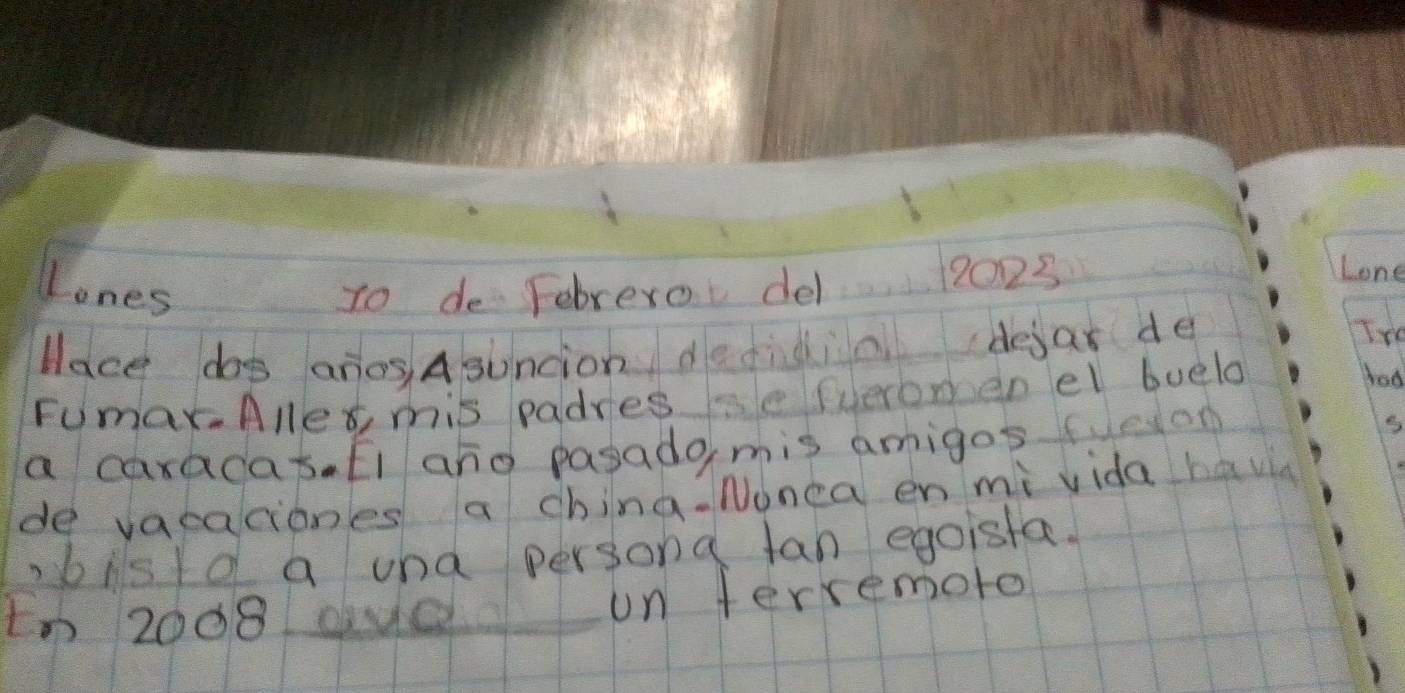 Lones 10 de Febrero del 2025
Hace dos años, Asuncion dedidio dejar de
Fumar. Aller, mis padres se fueron en el buelo
a caracas. El año pasado, mis amigos fueron
de vacaciones a china. Nonca en mi vida havia
bisto a una persona tan egoista.
En 2008 uvo un terremoto
Lone